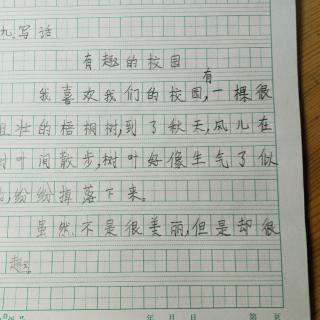 九写话
有趣的校园
有
我喜欢我们的校园,一棵很
壮的梧桐树,到了秋天,风儿在
树叶间散步,树叶好像生气了似
的,纷纷掉落下来。
虽然,不是很美丽,但是却很
趣。
年 月 日 第 页